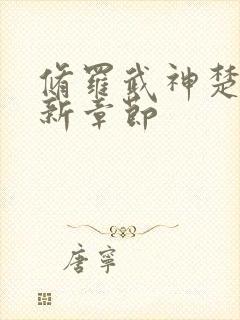 脩羅武神楚
新章節
唐寧